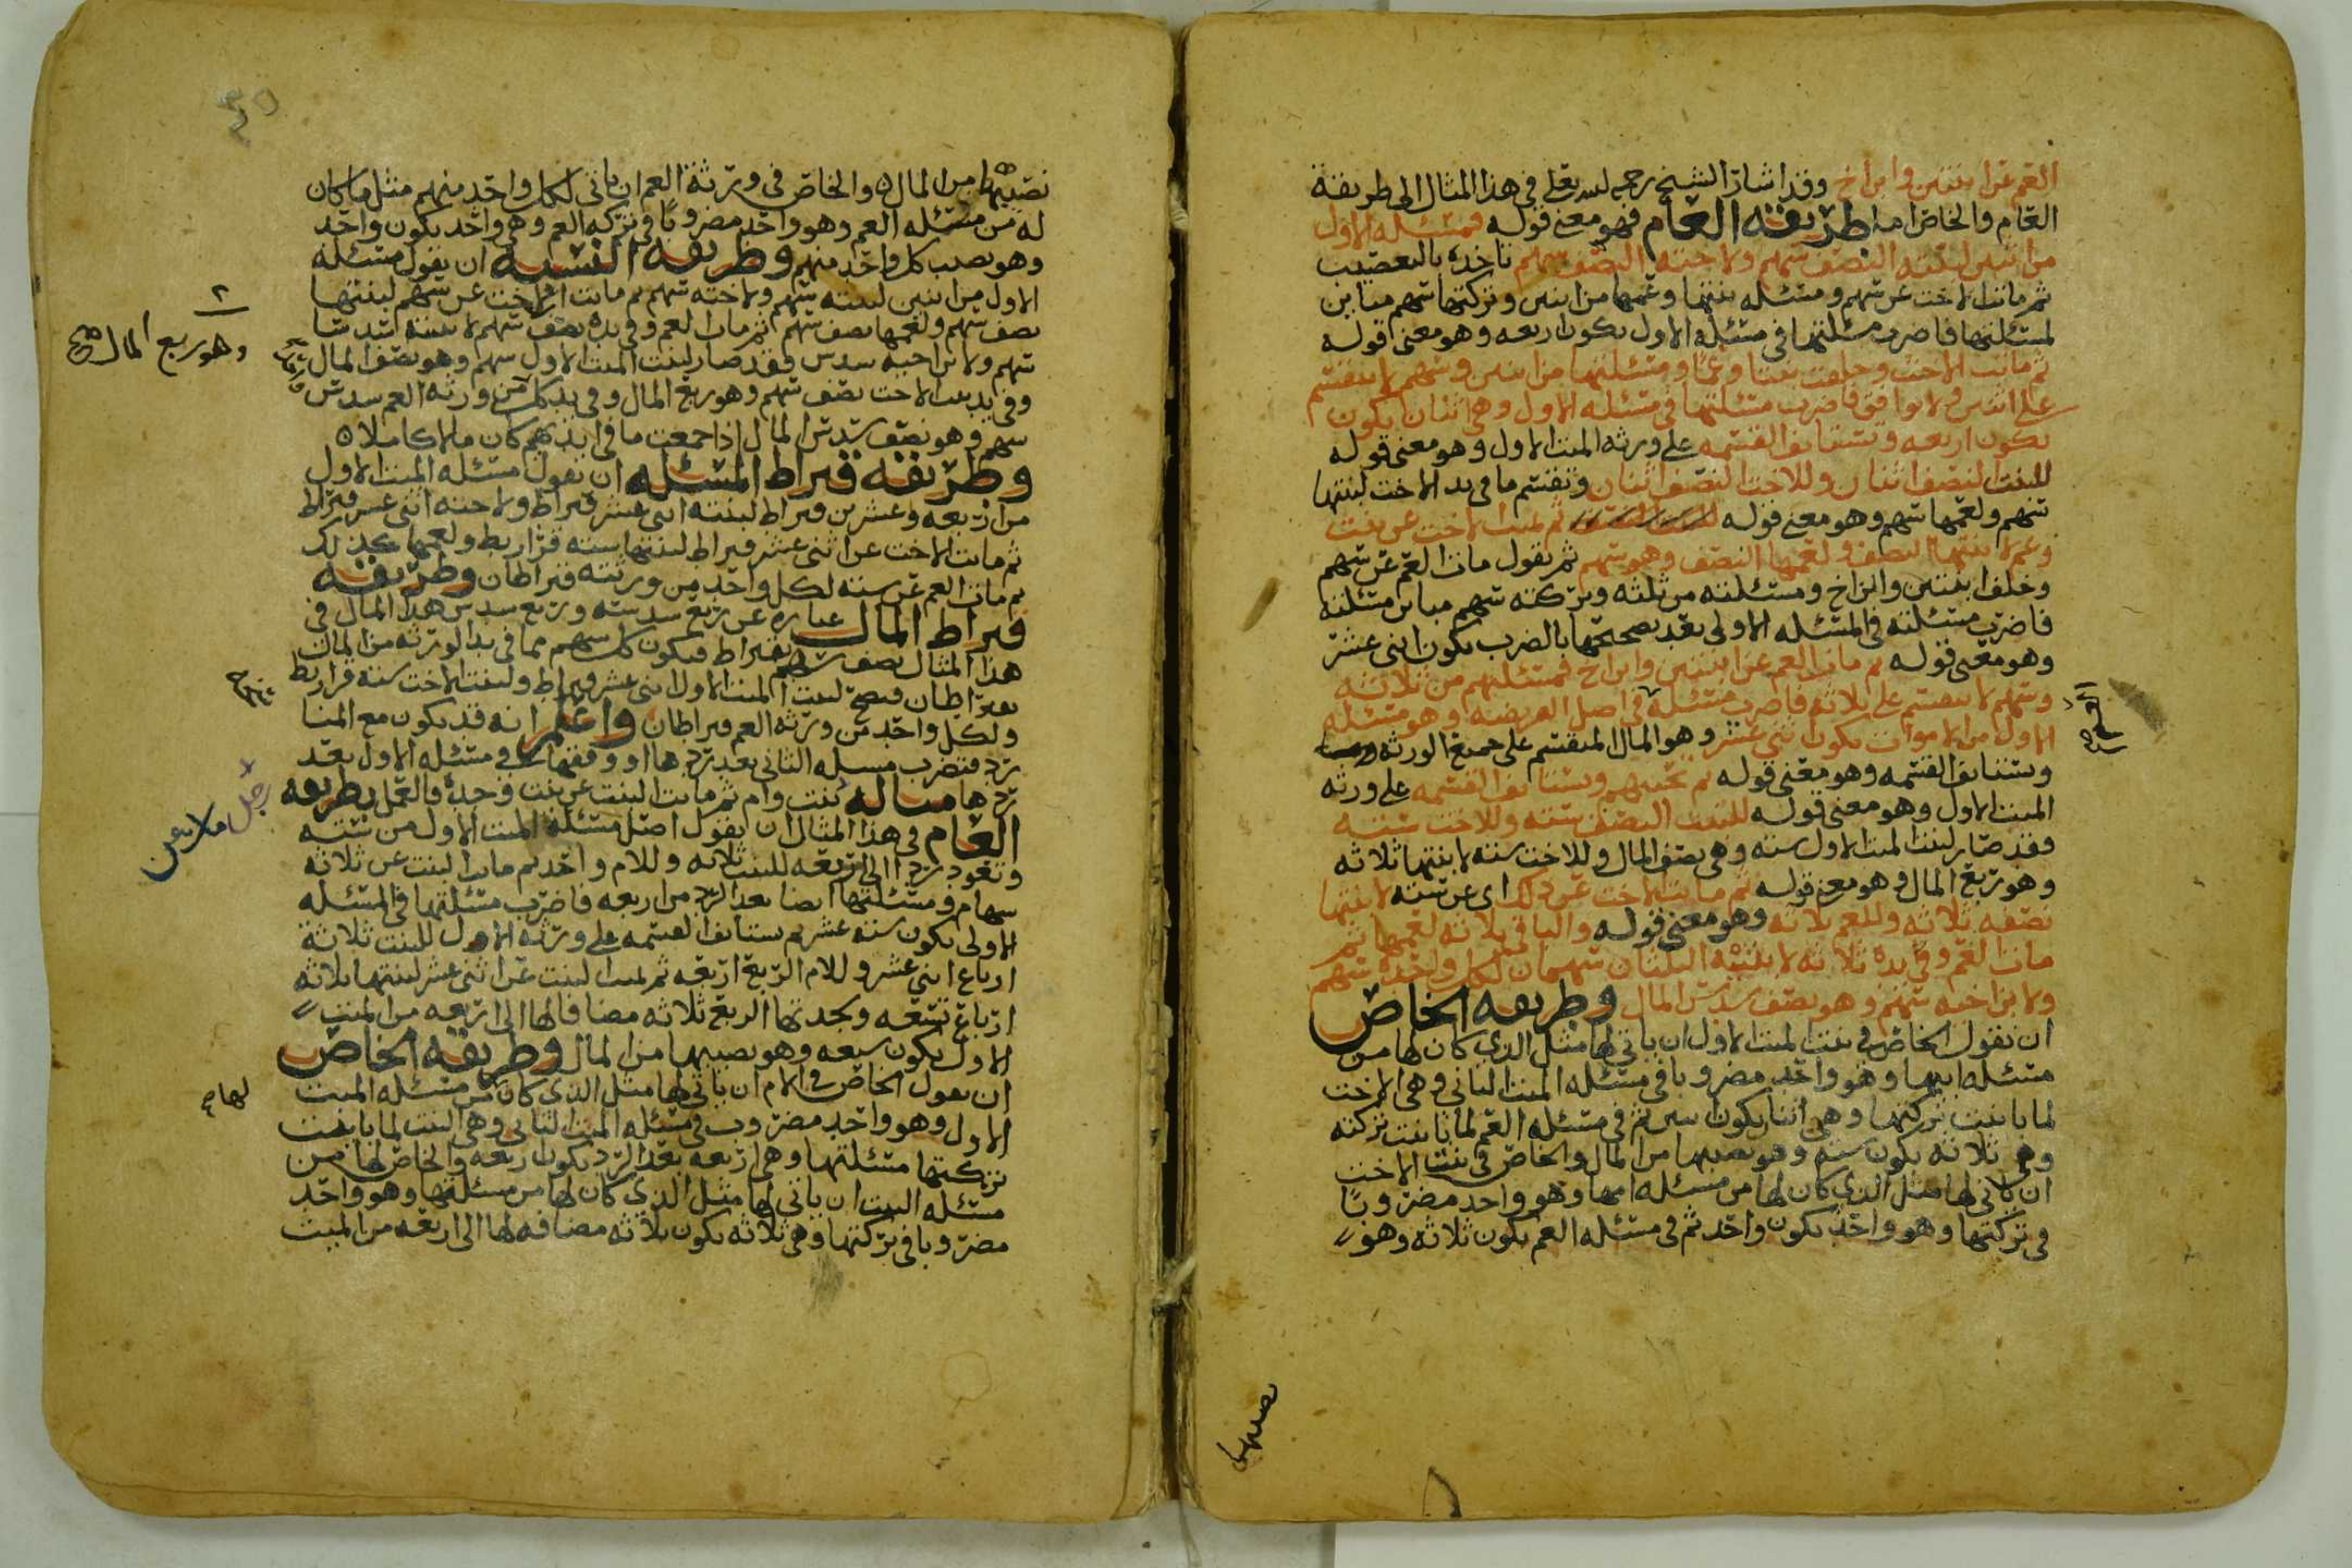 العم عن ابنتين وابن اخ وقد اشار الشيخ رحمه الله تعلى في هذا المثال الى طريقة
العام والخاص اما طريقة العام فهو معنى قوله فمسئلة الاول
من اثنين لبنته النصف سهم ولاخته النصف سهم تاخذه بالتعصيب
ثم ماتت الاخت عن سهم ومسئلة بنتها وعمها من اثنين وتركتها سهم مباين
لمسئلتها فاضرب مسئلتها في مسئلة الاول يكون اربعه وهو معنى قوله
ثم ماتت الاخت وخلفت بنتا وعما ومسئلتها من اثنين وسهم لا ينقسم
على اثنين ولا توافق فاضرب مسئلتها في مسئلة الاول وهي اثنان يكون
يكون اربعه وتستانف القسمه على ورثة الميت الاول وهو معنى قوله
للبنت النصف اثنان وللاخت النصف اثنان وتقسم ما في يد الاخت لبنتها
سهم ولعمها سهم وهو معنى قوله ثم لميت الاخت عن بنت
وعم لابنتها النصف ولعمها النصف وهو سهم ثم يقول مات العم عن سهم
وخلف ابنتين وابن اخ ومسئلته من ثلثة وتركته سهم مباين مسئلته
فاضرب مسئلته في المسئله الاولى بعد تصحيحها بالضرب يكون اثنى عشر
وهو معنى قوله ثم مات العم عن ابنتين وابن اخ فمسئلتهم من ثلاثة
وسهم لا ينقسم على ثلاثة فاضرب مسئلة في اصل الفريضه وهو مسئلة
الاول من الاموات يكون اثنى عشر وهو المال المنقسم على جميع الورثه
وتستانف القسمه وهو معنى قوله ثم تحييهم وتستانف القسمه على ورثة
الميت الاول وهو معنى قوله للبنت النصف ستة وللاخت ستة
فقد صار لبنت الميت الاول سته وهي نصف المال وللاخت سته لابنتها ثلاثه
وهو ربع المال وهو معنى قوله ثم ماتت الاخت عن ذلك اى عن سته لابنتها
نصفه ثلاثه وللعم ثلاثه وهو معنى قوله والباقي ثلاثه لعمها ثم
مات العم وفي يده ثلاثه لابنتيه الثلثان سهمان لكل واحده سهم
ولابن اخيه سهم وهو نصف سدس المال وطريقه الخاص
ان تقول الخاص في بنت الميت الاول ان ياتي لها مثل الذي كان لها من
مسئلة ابيها وهو واحد مضروبا في مسئلة الميت الثاني وهي الاخت
لما باينت تركتها وهي اثنان يكون اثنين ثم في مسئلة العم لما باينت تركته
وهي ثلاثه يكون سته وهو نصيبها من المال والخاص في بنت الاخت
ان ياتي لها مثل الذي كان لها من مسئلة امها وهو واحد مضروبا
في تركتها وهو واحد يكون واحد ثم في مسئلة العم يكون ثلاثه وهو
نصيبها
نصيبها من المال ه والخاص في ورثة العم ان ياتي لكل واحد منهم مثل ما كان
له من مسئله العم وهو واحد مضروبا في تركه العم وهي واحد يكون واحد
وهو نصيب كل واحد منهم وطريقه النسبه ان تقول مسئلة
الاول من اثنين لبنته سهم ولاخته سهم ثم ماتت الاخت عن سهم لبنتها
نصف سهم ولعمها نصف سهم ثم مات العم وفي يده نصف سهم لابنتيه ثلثا
سهم ولابن اخيه سدس فقد صار لبنت الميت الاول سهم وهو نصف المال
وفي يد بنت الاخت نصف سهم وهو ربع المال وفي يد كل من ورثه العم سدس
سهم وهو نصف سدس المال اذا جمعت ما في ايديهم كان مالا كاملا ه
وطريقه قيراط المسئله ان تقول مسئله الميت الاول
من اربعه وعشرين قيراط لبنته اثنى عشر قيراط ولاخته اثنى عشر قيراط
ثم ماتت الاخت عن اثنى عشر قيراط لبنتها سته قراريط ولعمها كذلك
ثم مات العم عن سته لكل واحد من ورثته قيراطان وطريقة
قيراط المال عباره عن ربع سدسه وربع سدس هذا المال في
هذا المثال نصف سهم بقيراط فيكون كل سهم مما في يد الورثه من المال
بقيراطان فيصح لبنت الميت الاول اثنى عشر قيراط ولبنت الاخت سته قراريط
ولكل واحد من ورثه العم قيراطان واعلم انه قد يكون مع المنا
رد فتضرب مسئله الثاني بعد ردها او وفقها في مسئله الاول بعد
ردها مثاله بنت وام ثم ماتت البنت عن بنت وجدة فالعمل بطريقه
العام في هذا المثال ان تقول اصل مسئلة الميت الاول من سته
وتعود ردا الى اربعه للبنت ثلاثه وللام واحد ثم ماتت البنت عن ثلاثه
سهام ومسئلتها ايضا بعد الرد من اربعه فاضرب مسئلتها في المسئله
الاولى يكون سته عشر ثم ستانف القسمه على ورثة الاول للبنت ثلاثة
ارباع اثنى عشر وللام الربع اربعه ثم لميت البنت عن اثنى عشر لبنتها ثلاثه
ارباع تسعه ولجدتها الربع ثلاثه مضافا لها الى اربعه من الميت
الاول يكون سبعه وهو نصيبها من المال وطريقة الخاص
ان تقول الخاص في الام ان ياتي لها مثل الذي كان من مسئله الميت
الاول وهو واحد مضروب في مسئله الميت الثاني وهي البنت لما باينت
تركتها مسئلتها وهي اربعه بعد الرد يكون اربعه والخاص لها من
مسئله البنت ان ياتي لها مثل الذي كان لها من مسئلتها وهو واحد
مضروبا في تركتها وهي ثلاثه يكون ثلاثه مضافه لها الى اربعه من الميت
وهو ربع المال صح
لها صح